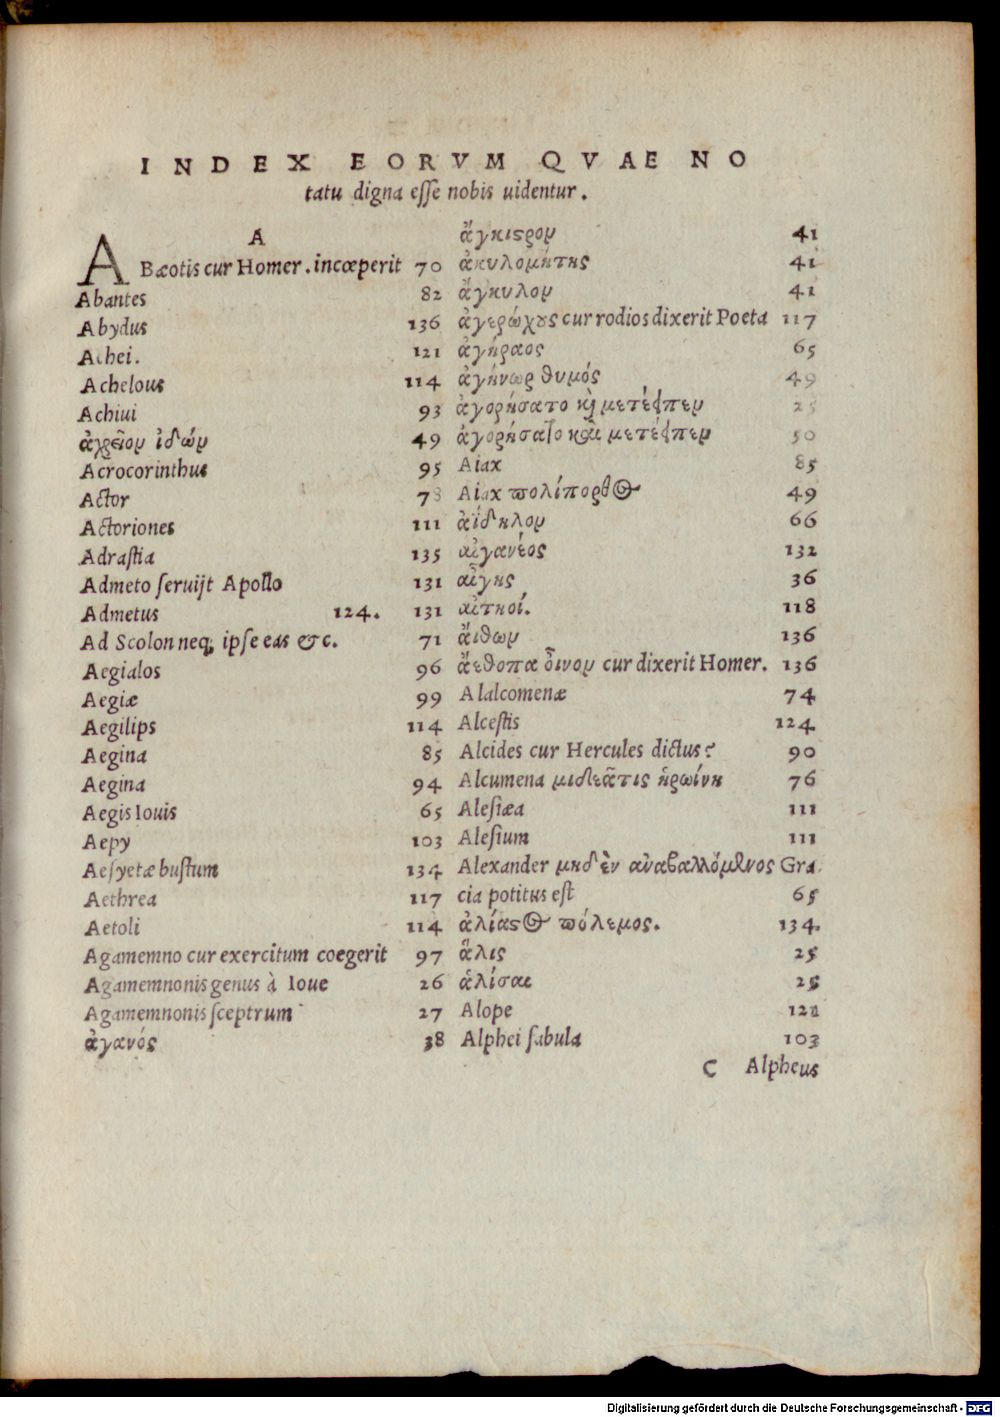 INDEX EORVM QVAE NO
tatu digna esse nobis uidentur.
A
ABæotis cur Homer. incœperit 70
Abantes 82
Abydus 136
Achei. 121
Achelous 114
Achiui 93
ἀχρεῖον ἰδών 49
Acrocorinthus 95
Actor 78
Actoriones 111
Adrastia 135
Admeto seruijt Apollo 131
Admetus 124. 131
Ad Scolon neq; ipse eas &c. 71
Aegialos 96
Aegiæ 99
Aegilips 114
Aegina 85
Aegina 94
Aegis Iouis 65
Aepy 103
Aesyetæ bustum 134
Aethrea 117
Aetoli 114
Agamemno cur exercitum coegerit 97
Agamemnonis genus à Ioue 26
Agamemnonis sceptrum 27
ἀγανός 38
ἄγκιστρον 41
ἀκυλομήτης 41
ἄγκυλον 41
ἀγερώχους cur rodios dixerit Poeta 117
ἀγήραος 65
ἀγήνωρ θυμός 49
ἀγορήσατο καὶ μετέειπεν 25
ἀγορήσατο καὶ μετέειπεν 50
Aiax 85
Aiax πολίπορθος 49
ἀΐδηλον 66
αἰγανέος 132
αἴγης 36
αἰτηοί. 118
ἄιθων 136
ἄεθοπα οἶνον cur dixerit Homer. 136
Alalcomenæ 74
Alcestis 124
Alcides cur Hercules dictus? 90
Alcumena μιδεᾶτις ἡρωίνη 76
Alesiæa 111
Alesium 111
Alexander μηδὲν ἀναβαλλόμενος Gra
cia potitus est 65
ἀλίαστος πόλεμος. 134.
ἅλις 25
ἁλίσαι 25
Alope 121
Alphei fabula 103
C Alpheus
Digitalisierung gefördert durch die Deutsche Forschungsgemeinschaft - DFG